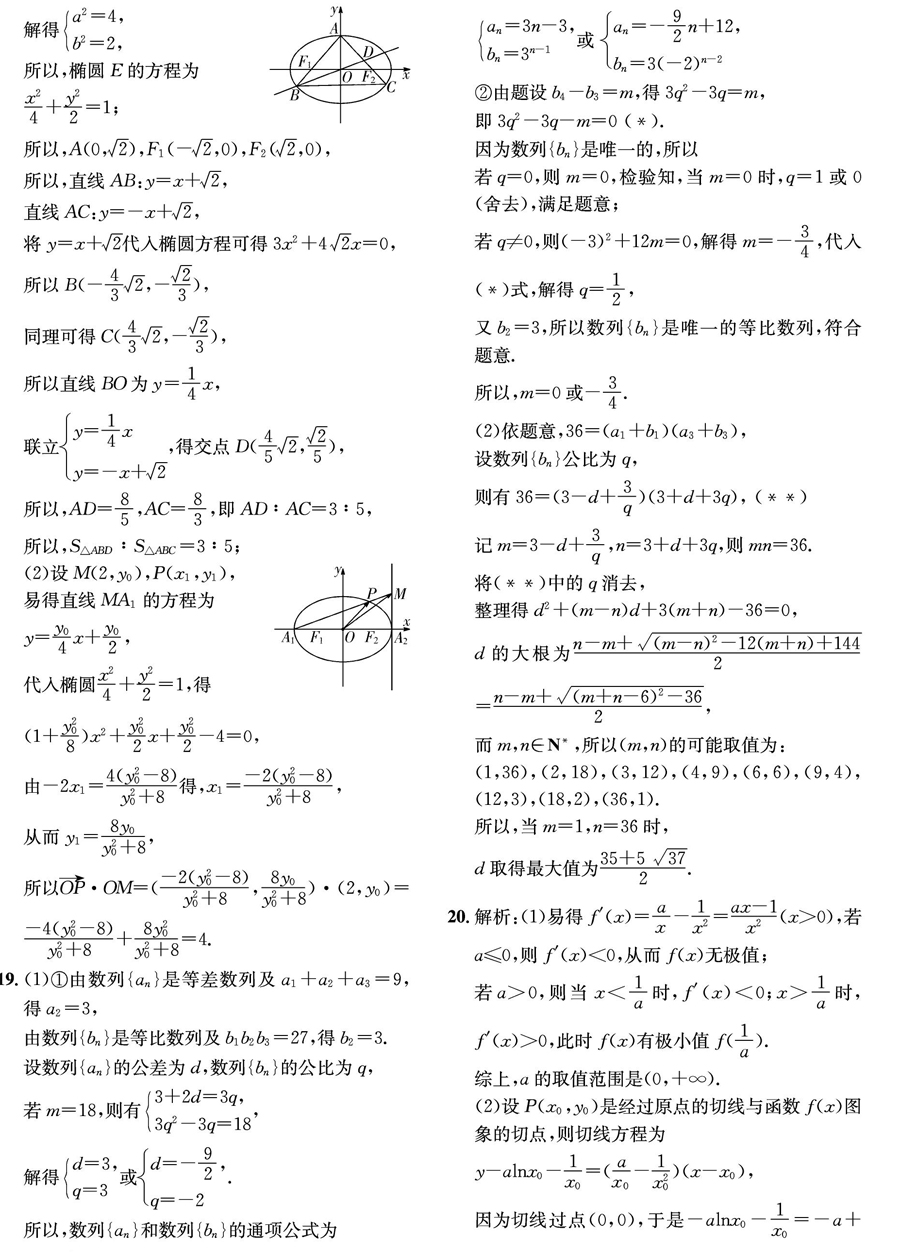 解得{a²=4, b²=2,
所以,椭圆 E 的方程为
x²/4+y²/2=1;
y
A
D
F₁
O
F₂
x
B
C
所以,A(0,√2),F₁(-√2,0),F₂(√2,0),
所以,直线 AB:y=x+√2,
直线 AC:y=-x+√2,
将 y=x+√2代入椭圆方程可得 3x²+4√2x=0,
所以 B(-4/3√2,-√2/3),
同理可得 C(4/3√2,-√2/3),
所以直线 BO 为 y=1/4x,
联立{y=1/4x y=-x+√2,得交点 D(4/5√2,√2/5),
所以,AD=8/5,AC=8/3,即 AD∶AC=3∶5,
所以,S△ABD∶S△ABC=3∶5;
(2)设 M(2,y₀),P(x₁,y₁),
易得直线 MA₁ 的方程为
y=y₀/4x+y₀/2,
y
P
M
x
A₁
F₁
O
F₂
A₂
代入椭圆x²/4+y²/2=1,得
(1+y₀²/8)x²+y₀²/2x+y₀²/2-4=0,
由-2x₁=4(y₀²-8)/y₀²+8得,x₁=-2(y₀²-8)/y₀²+8,
从而 y₁=8y₀/y₀²+8,
所以OP→·OM=(-2(y₀²-8)/y₀²+8,8y₀/y₀²+8)·(2,y₀)=
-4(y₀²-8)/y₀²+8+8y₀²/y₀²+8=4.
19. (1)①由数列{aₙ}是等差数列及 a₁+a₂+a₃=9,
得 a₂=3,
由数列{bₙ}是等比数列及 b₁b₂b₃=27,得 b₂=3.
设数列{aₙ}的公差为 d,数列{bₙ}的公比为 q,
若 m=18,则有{3+2d=3q, 3q²-3q=18,
解得{d=3, q=3 或{d=-9/2, q=-2.
所以,数列{aₙ}和数列{bₙ}的通项公式为
{aₙ=3n-3, bₙ=3ⁿ⁻¹ 或 {aₙ=-9/2n+12, bₙ=3(-2)ⁿ⁻²
②由题设 b₄-b₃=m,得 3q²-3q=m,
即 3q²-3q-m=0 (*).
因为数列{bₙ}是唯一的,所以
若 q=0,则 m=0,检验知,当 m=0 时,q=1 或 0
(舍去),满足题意;
若 q≠0,则(-3)²+12m=0,解得 m=-3/4,代入
(*)式,解得 q=1/2,
又 b₂=3,所以数列{bₙ}是唯一的等比数列,符合
题意.
所以,m=0 或-3/4.
(2)依题意,36=(a₁+b₁)(a₃+b₃),
设数列{bₙ}公比为 q,
则有 36=(3-d+3/q)(3+d+3q), (**)
记 m=3-d+3/q,n=3+d+3q,则 mn=36.
将(**)中的 q 消去,
整理得 d²+(m-n)d+3(m+n)-36=0,
d 的大根为n-m+√(m-n)²-12(m+n)+144/2
=n-m+√(m+n-6)²-36/2,
而 m,n∈N*,所以(m,n)的可能取值为:
(1,36),(2,18),(3,12),(4,9),(6,6),(9,4),
(12,3),(18,2),(36,1).
所以,当 m=1,n=36 时,
d 取得最大值为35+5√37/2.
20. 解析:(1)易得 f′(x)=a/x-1/x²=ax-1/x²(x>0),若
a≤0,则 f′(x)<0,从而 f(x)无极值;
若 a>0,则当 x<1/a时,f′(x)<0;x>1/a时,
f′(x)>0,此时 f(x)有极小值 f(1/a).
综上,a 的取值范围是(0,+∞).
(2)设 P(x₀,y₀)是经过原点的切线与函数 f(x)图
象的切点,则切线方程为
y-alnx₀-1/x₀=(a/x₀-1/x₀²)(x-x₀),
因为切线过点(0,0),于是-alnx₀-1/x₀=-a+